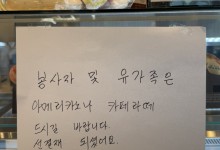 봉사자 및 유가족은
아메리카노나 카페라떼
드시길 바랍니다.
선결재 되었어요.